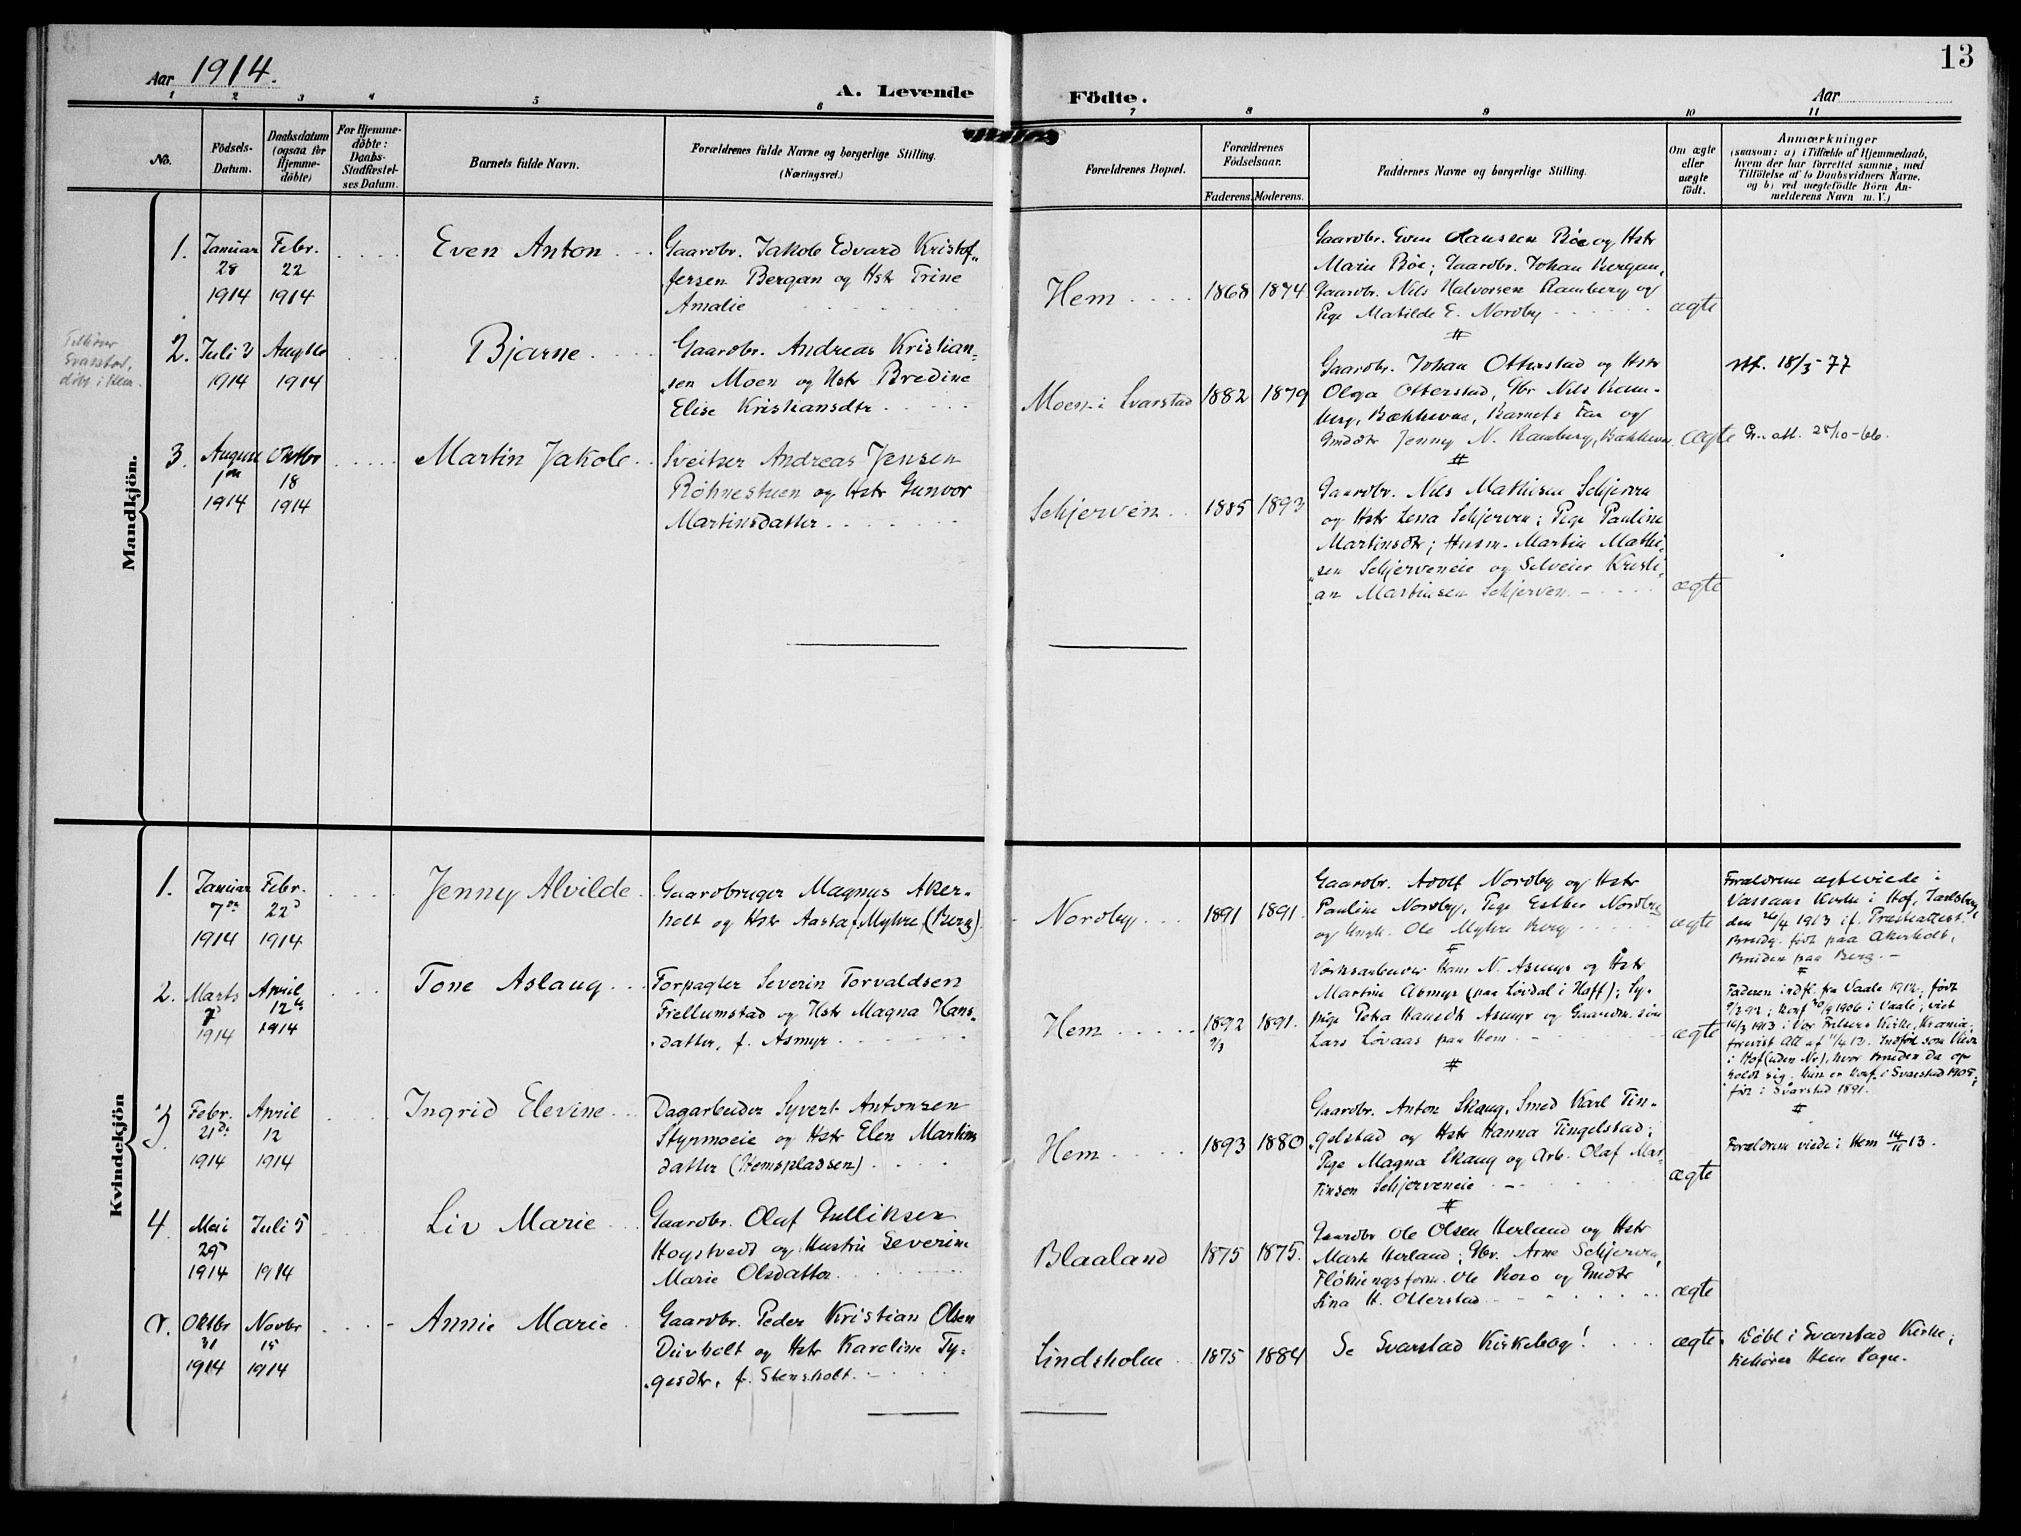 13
Aar 1914.
A. Levende Födte.
Aar
1 2 3 4 5 6 7 8 9 10 11
No.
Födsels-Datum.
Daabsdatum (ogsaa for Hjemme-döbte)
For Hjemme-döbte: Daabs-Stadfæstel-ses Datum.
Barnets fulde Navn.
Forældrenes fulde Navne og borgerlige Stilling.
(Næringsvei.)
Forældrenes Bopæl.
Forældrenes Födselsaar.
Faderens. Moderens.
Faddernes Navne og borgerlige Stilling.
Om ægte eller uægte födt.
Anmærkninger
(saasom: a) i Tilfælde af Hjemmedaab,
hvem der har forrettet samme, med
Tilföielse af to Daabsvidners Navne,
og b) ved uægtefödte Börn An-
melderens Navn m. V.)
Mandkjön.
1. Januar 28 1914
Febr. 22 1914
Even Anton
Gaardbr. Jakob Edvard Kristof-
fersen Bergan og Hstr Trine
Amalie
Hem
1868 1874
Gaardbr. Even Hanssen Böe og Hstr
Marie Böe; Gaardbr. Johan Bergan,
Gaardbr. Nils Halvorsen Ramberg og
Pige Matilde E. Nordby
ægte
Tilhører
Svarstad,
döbt i Hem.
2. Juli 3 1914
Aug 16 1914
Bjarne
Gaardbr. Andreas Kristian-
sen Moen og Hstr Bredine
Elise Kristiansdtr
Moen i Svarstad
1882 1879
Gaardbr. Johan Otterstad og Hstr
Olga Otterstad, Gbr Nils Ram-
berg, Bækkevar, Barnets Far og
Gmdtr Jenny N. Ramberg, Bækkevar
ægte
att. 18/5-77
28/10-66.
3. August 1914
Oktbr 18 1914
Martin Jakob
Sveitser Andreas Jensen
Röhnestuen og Hstr Gunvor
Martinsdatter
Schjerven
1885 1893
Gaardbr. Nils Mathisen Schjerven
og Hstr Lena Schjerven; Pige Pauline
Martinsdtr; Husm. Martin Mathi-
sen Schjerveneie og Selveier Kristi-
an Martinsen Schjerven
ægte
Kvindekjön
1. Januar 7de 1914
Febr. 22d 1914
Jenny Alvilde
Gaardbruger Magnus Aker-
holt og Hstr Aasta f. Myhre (Berg)
Nordby
1891 1891
Gaardbr. Adolf Nordby og Hstr
Pauline Nordby, Pige Esther Nordby
og Ungk. Ole Myhre Berg
ægte
Forældrene ægteviede i
Vassaas Kirke i Hof, Jarlsberg
den 26/4 1913 if. Præsteattest.
Brudg. født paa Akerholt,
Bruden paa Berg.
2. Marts 7d 1914
April 12te 1914
Tone Aslaug
Forpagter Severin Torvaldsen
Frellumstad og Hstr Magna Hans-
datter, f. Asmyr
Hem
1892 9/3 1891.
Værksarbeider Hans N. Asmyr og Hstr
Martine Asmyr (paa Løvdal i Hoff); Sy-
pige Petra Hansdtr Asmyr og Gaardm. søn
Lars Løvaas paa Hem
ægte
Faderen indfl. fra Vaale 1912, født
9/3 92; Konf 30/9 1906 i Vaale; viet
16/3 1913 i Vor Frelsers Kirke, Krania,
forevist Att af 1/4 12. Indført som viede
i Hof (uden No), hvor Bruden da op-
holdt sig. Hun er konf. i Svarstad 1905,
født i Svarstad 1891.
3 Febr. 21de 1914
April 12 1914
Ingrid Elevine
Dagarbeider Syvert Antonsen
Stypmoeie og Hstr Elen Martins
datter (Hemspladsen)
Hem
1893 1880
Gaardbr. Anton Skaug, Smed Karl Tin-
gelstad og Hstr Hanna Tingelstad;
Pige Magna Skaug og Arb. Olaf Mar-
tinsen Schjerveneie
ægte
Forældrene viede i Hem 14/11 13.
4. Mai 29d 1914
Juli 5 1914
Liv Marie
Gaardbr. Olaf Gulliksen
Hogstvedt og Hustru Severine
Marie Olsdatter
Blaaland
1875 1875.
Gaardbr Ole Olsen Herland og Hstr
Marte Herland; Gbr. Arne Schjerven,
Fløtningsform. Ole Roso og Gmdtr
Lina H. Otterstad
ægte
Oktbr 31 1914
Novbr 15 1914
Annie Marie
Gaardbr. Peder Kristian Olsen
Duvholt og Hstr Karoline Ty-
gesdtr, f. Stensholt.
Lindsholm
1875 1884
Se Svarstad Kirkebog!
ægte
Döbt i Svarstad Kirke;
tilhører Hem Sogn.